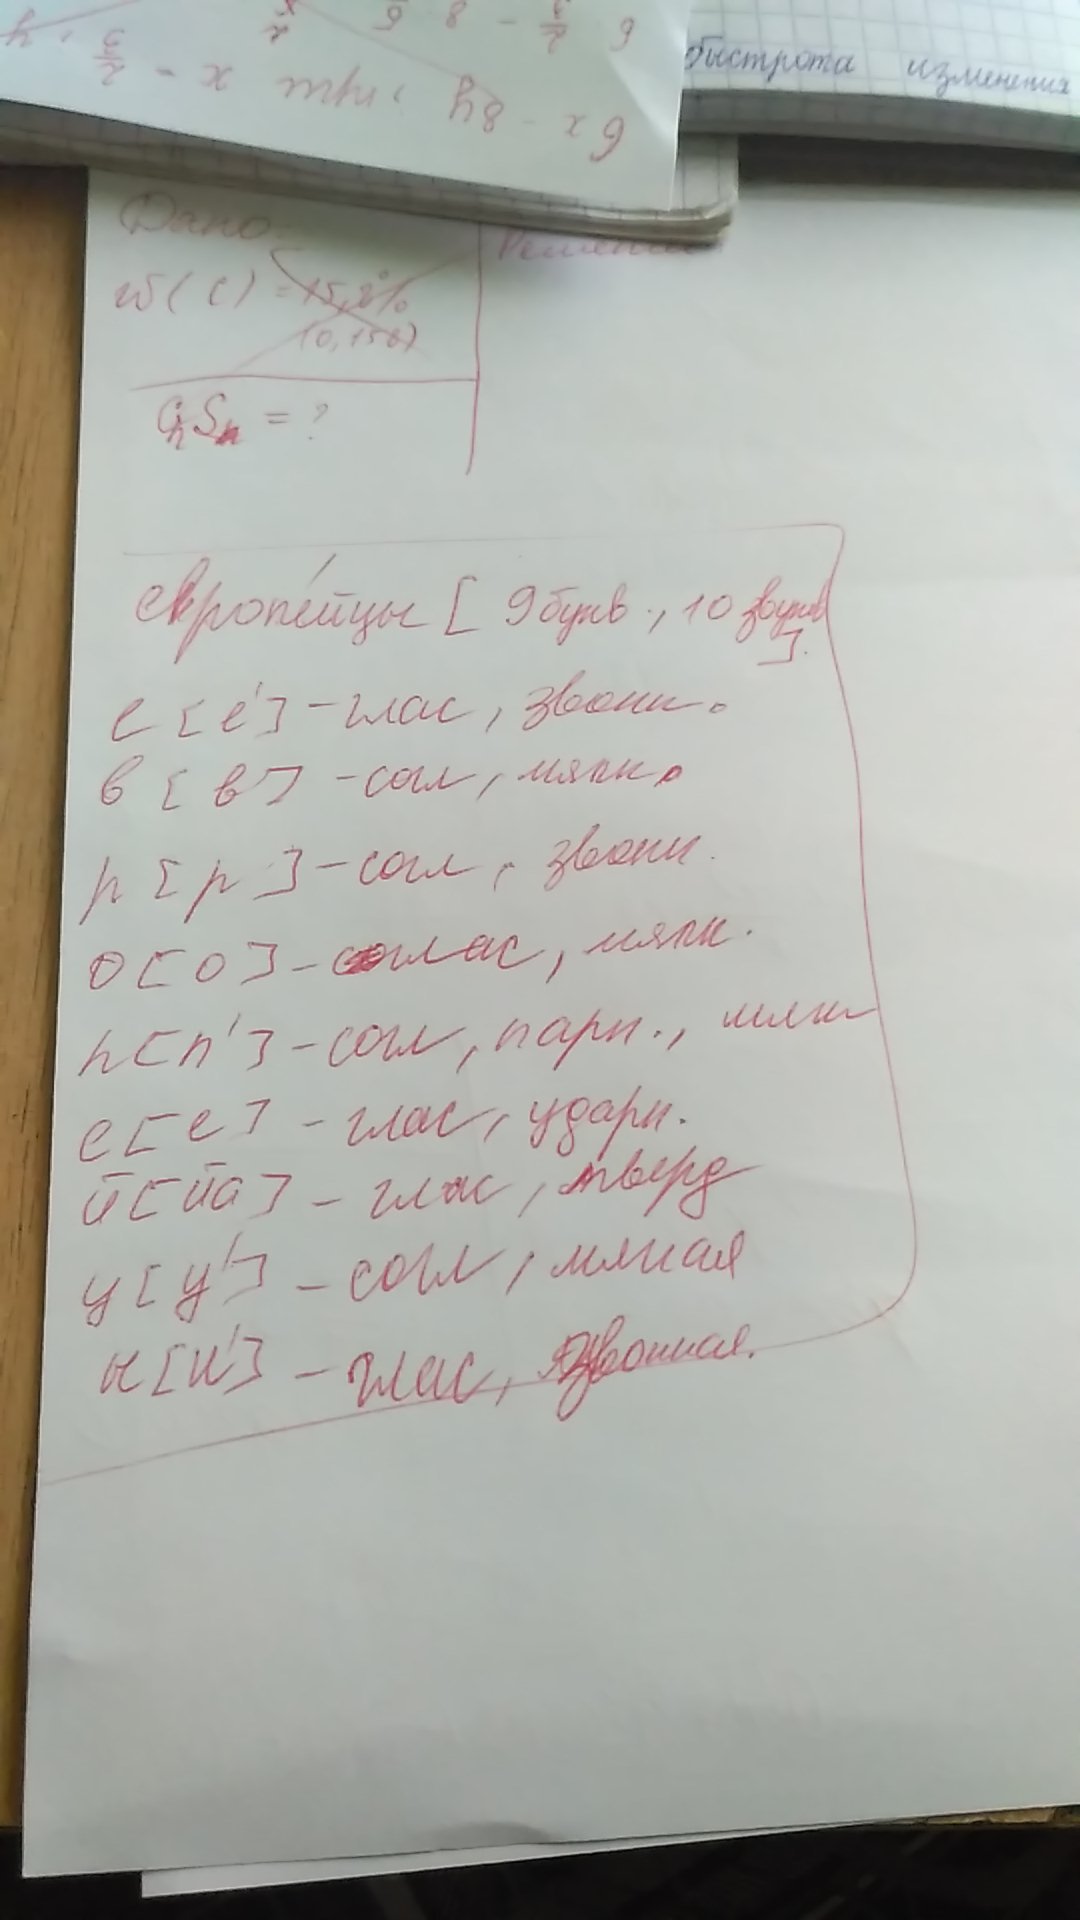 6 · 2/3 - 8 · 6
6x - 8y, при x = 2/3, y
быстрота изменения
Дано:
Решение
w(C) = 15,8%
(0,158)
CnSn = ?
европе́йцы [ 9 букв., 10 звуков
].
е [е'] - глас, звонк.
в [в] - согл, мягк.
р [р] - согл, звонк.
о [о] - глас, мягк.
п [п'] - согл, парн., мягк
е [е] - глас, ударн.
й [йа] - глас, тверд
ц [ц'] - согл, мягкая
и [и'] - глас, звонкая.